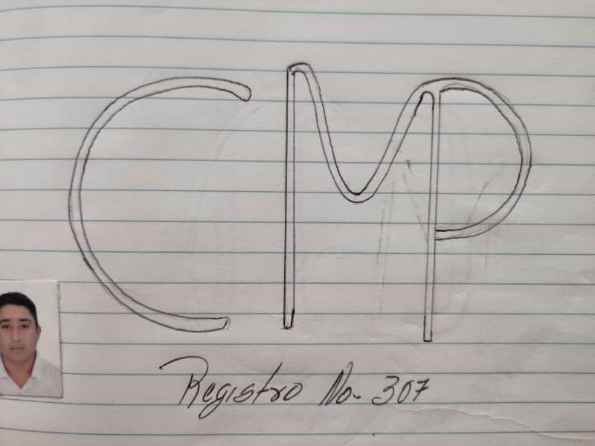 CMP
Registro No. 307